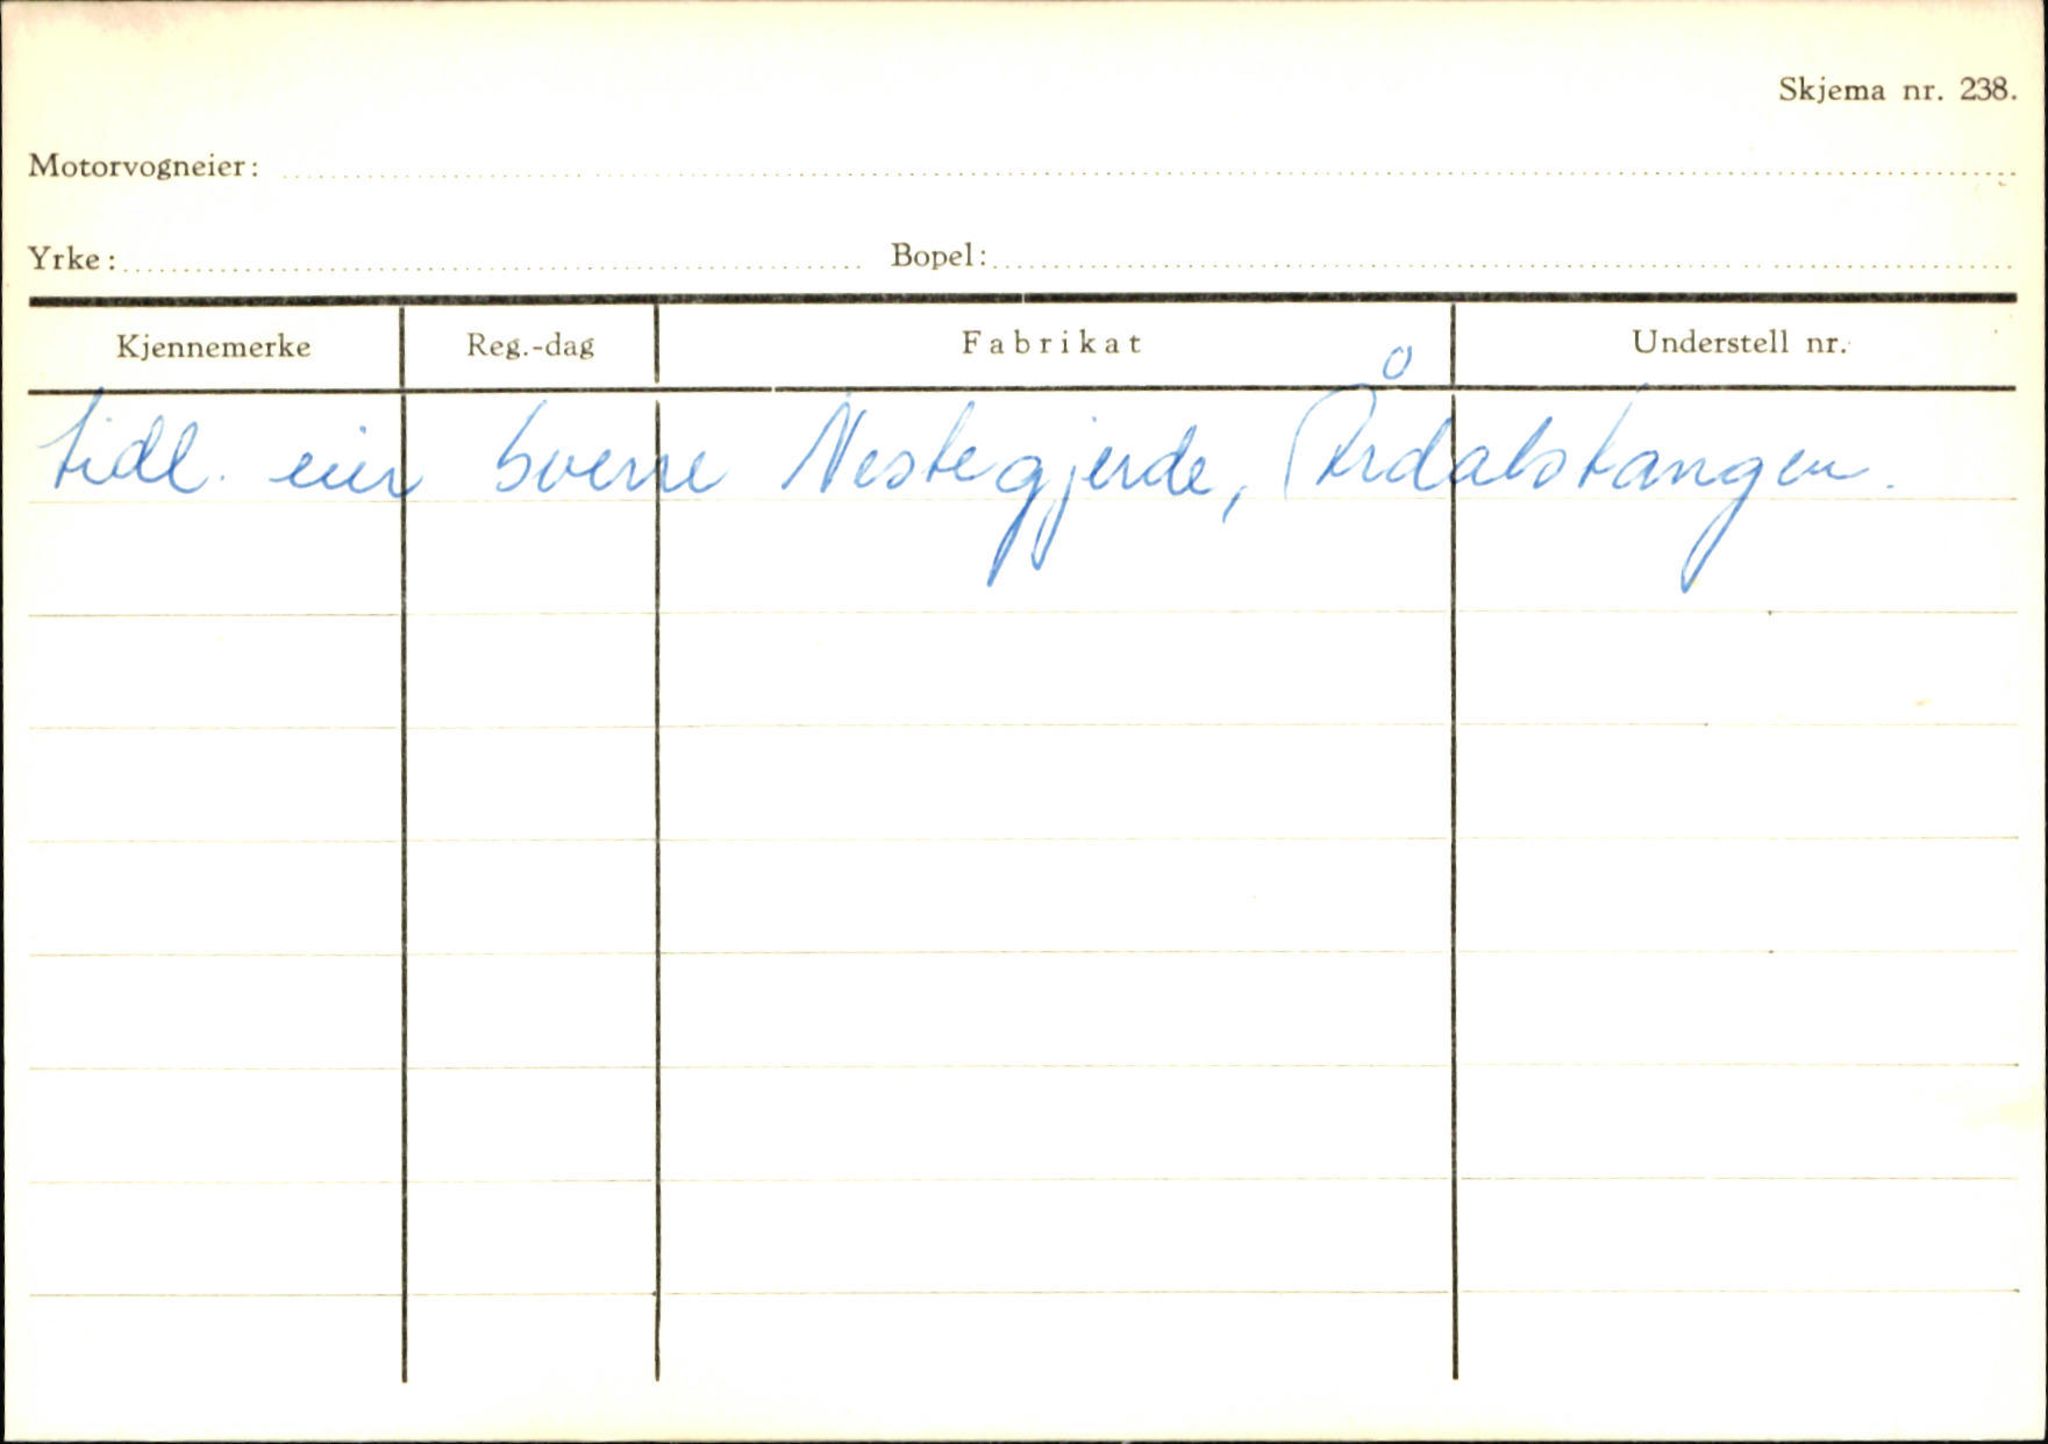 Skjema nr. 238.
Motorvogneier:
Yrke: Bopel:
Kjennemerke Reg.-dag Fabrikat Understell nr.
tidl. eier Sverre Nestegjerde, Årdalstangen.